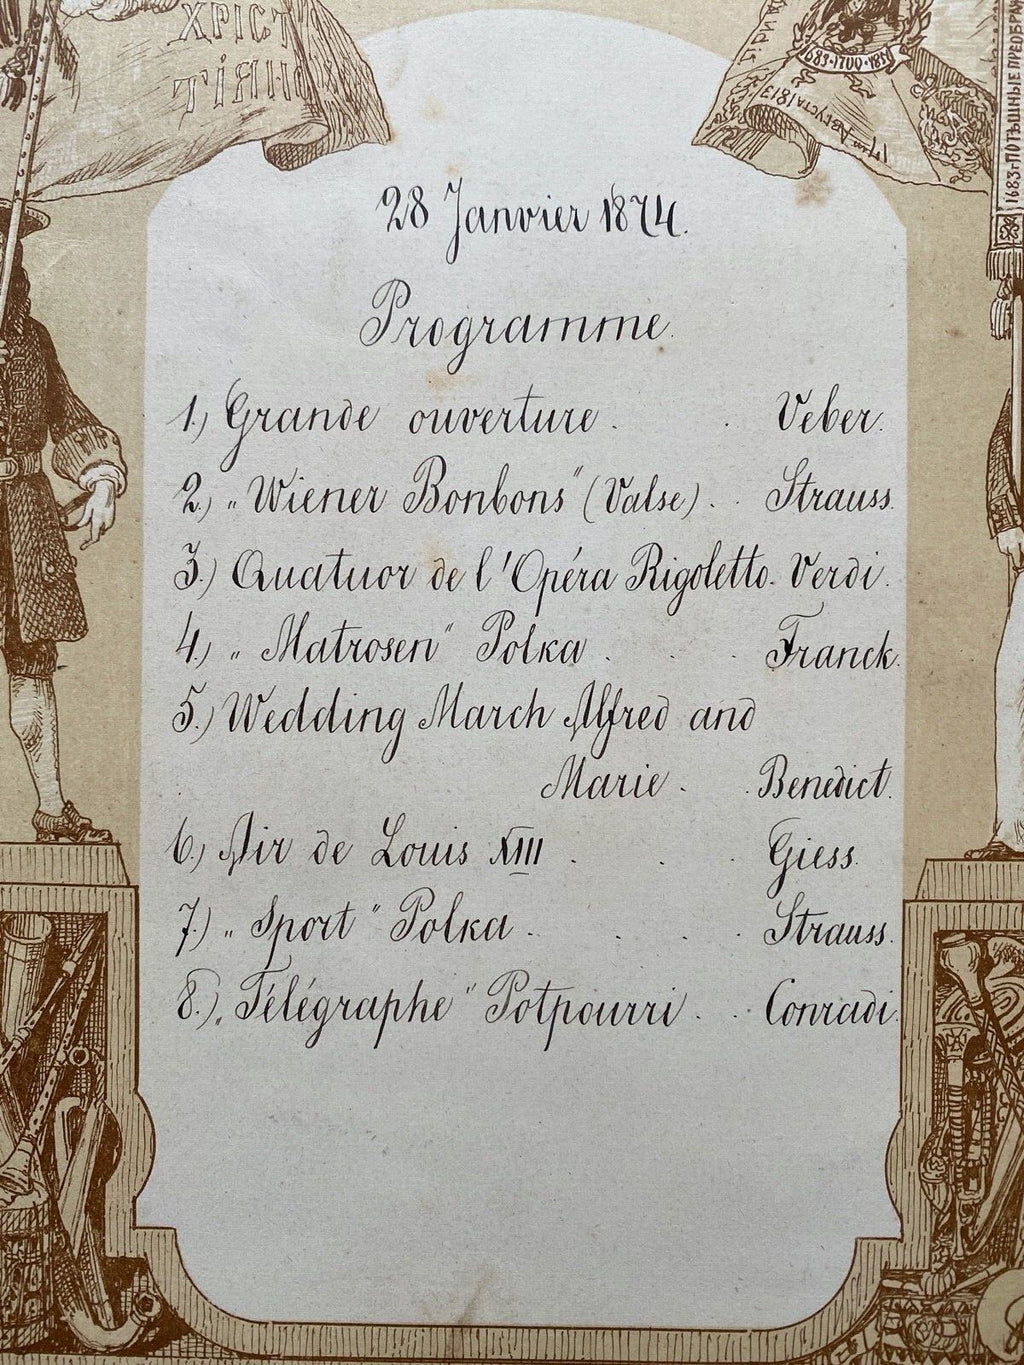 ХРІСТ
ТІЯНО
1683·1700·1850
17го Августа 1813
1683 г. ПОТѢШНЫЕ ПРЕОБРА
28 Janvier 1874.
Programme.
1.) Grande ouverture . . Veber.
2.) „Wiener Bonbons" (Valse) . . Strauss.
3.) Quatuor de l'Opéra Rigoletto. Verdi.
4.) „Matrosen" Polka . . . Franck.
5.) Wedding March Alfred and
Marie . . Benedict.
6.) Air de Louis XIII . . . Giess.
7.) „Sport" Polka . . . . Strauss.
8.) „Télégraphe" Potpourri . . Conradi.